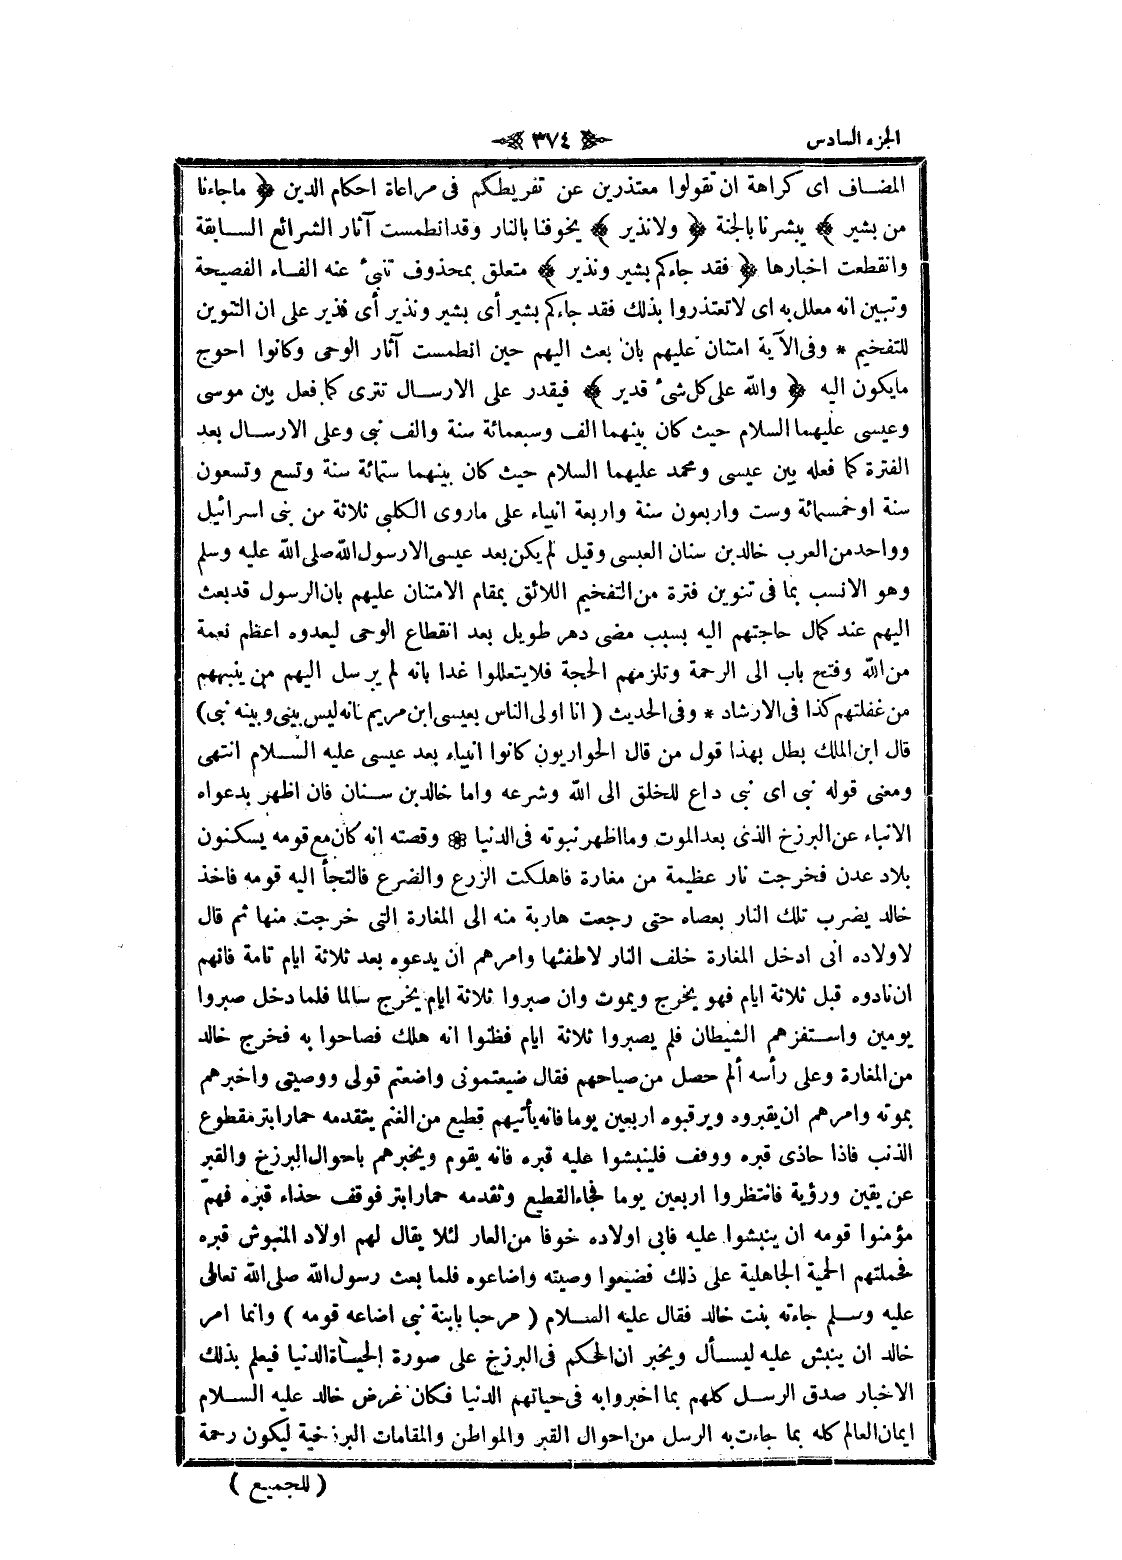 الجزء السادس
٣٧٤
المضاف اى كراهة ان تقولوا معتذرين عن تفريطكم فى مراعاة احكام الدين ﴿ ماجاءنا
من بشير ﴾ يبشرنا بالجنة ﴿ ولانذير ﴾ يخوفنا بالنار وقدانطمست آثار الشرائع السابقة
وانقطعت اخبارها ﴿ فقد جاءكم بشير ونذير ﴾ متعلق بمحذوف تنبئ عنه الفاء الفصيحة
وتبين انه معلل به اى لاتعتذروا بذلك فقد جاءكم بشير أى بشير ونذير أى نذير على ان التنوين
للتفخيم * وفى الآية امتنان عليهم بان بعث اليهم حين انطمست آثار الوحى وكانوا احوج
مايكون اليه ﴿ والله على كل شئ قدير ﴾ فيقدر على الارسال تترى كما فعل بين موسى
وعيسى عليهما السلام حيث كان بينهما الف وسبعمائة سنة والف نبى وعلى الارسال بعد
الفترة كما فعله بين عيسى ومحمد عليهما السلام حيث كان بينهما ستمائة سنة وتسع وتسعون
سنة اوخمسمائة وست واربعون سنة واربعة انبياء على ماروى الكلبى ثلاثة من بنى اسرائيل
وواحد من العرب خالد بن سنان العبسى وقيل لم يكن بعد عيسى الارسول الله صلى الله عليه وسلم
وهو الانسب بما فى تنوين فترة من التفخيم اللائق بمقام الامتنان عليهم بان الرسول قدبعث
اليهم عند كمال حاجتهم اليه بسبب مضى دهر طويل بعد انقطاع الوحى ليعدوه اعظم نعمة
من الله وفتح باب الى الرحمة وتلزمهم الحجة فلايتعللوا غدا بانه لم يرسل اليهم من ينبههم
من غفلتهم كذا فى الارشاد * وفى الحديث ( انا اولى الناس بعيسى ابن مريم فانه ليس بينى وبينه نبى )
قال ابن الملك بطل بهذا قول من قال الحواريون كانوا انبياء بعد عيسى عليه السلام انتهى
ومعنى قوله نبى اى نبى داع للخلق الى الله وشرعه واما خالد بن سنان فان اظهر بدعواه
الانباء عن البرزخ الذى بعد الموت وما اظهر نبوته فى الدنيا ❁ وقصته انه كان مع قومه يسكنون
بلاد عدن فخرجت نار عظيمة من مغارة فاهلكت الزرع والضرع فالتجأ اليه قومه فاخذ
خالد يضرب تلك النار بعصاه حتى رجعت هاربة منه الى المغارة التى خرجت منها ثم قال
لاولاده انى ادخل المغارة خلف النار لاطفئها وامرهم ان يدعوه بعد ثلاثة ايام تامة فانهم
ان نادوه قبل ثلاثة ايام فهو يخرج ويموت وان صبروا ثلاثة ايام يخرج سالما فلما دخل صبروا
يومين واستفزهم الشيطان فلم يصبروا ثلاثة ايام فظنوا انه هلك فصاحوا به فخرج خالد
من المغارة وعلى رأسه ألم حصل من صياحهم فقال ضيعتمونى واضعتم قولى ووصيتى واخبرهم
بموته وامرهم ان يقبروه ويرقبوه اربعين يوما فانه يأتيهم قطيع من الغنم يتقدمه حمار ابتر مقطوع
الذنب فاذا حاذى قبره ووقف فلينبشوا عليه قبره فانه يقوم ويخبرهم باحوال البرزخ والقبر
عن يقين ورؤية فانتظروا اربعين يوما فجاء القطيع وتقدمه حمار ابتر فوقف حذاء قبره فهمّ
مؤمنوا قومه ان ينبشوا عليه فابى اولاده خوفا من العار لئلا يقال لهم اولاد المنبوش قبره
فحملتهم الحمية الجاهلية على ذلك فضيعوا وصيته واضاعوه فلما بعث رسول الله صلى الله تعالى
عليه وسلم جاءته بنت خالد فقال عليه السلام ( مرحبا يابنة نبى اضاعه قومه ) وانما امر
خالد ان ينبش عليه ليسأل ويخبر ان الحكم فى البرزخ على صورة الحياة الدنيا فيعلم بذلك
الاخبار صدق الرسل كلهم بما اخبروا به فى حياتهم الدنيا فكان غرض خالد عليه السلام
ايمان العالم كله بما جاءت به الرسل من احوال القبر والمواطن والمقامات البرزخية ليكون رحمة
( للجميع )